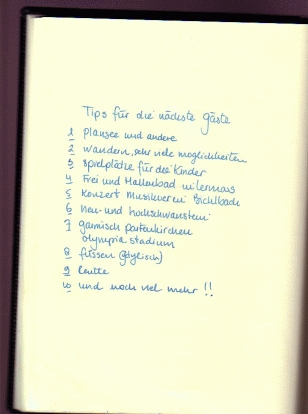 Tips für die nächste gäste
1 plansee und andere
2 wandern, sehr viele möglichkeiten
3 spielplätze für die Kinder
4 Frei und Hallenbad in lermoos
5 Konzert Musikverein Bichlbach
6 neu- und hochschwanstein
7 garmisch partenkirchen
olympia stadium
8 füssen (idylisch)
9 reutte
10 und noch viel mehr !!